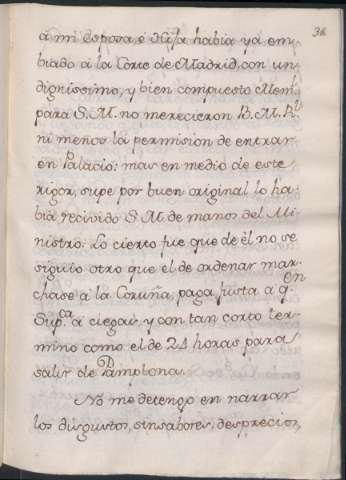 36
á mi Esposa, é Hija havia yá em
biado á la Corte de Madrid, con un
dignissimo, y bien compuesto Meml.
para S. M. no merecieron B. M. Rl.
ni menos la permission de entrar
en Palacio: mas en medio de este
rigor, supe por buen original lo ha
bia recivido S. M. de manos del Mi
nistro: Lo cierto fue que de él no se
siguio otro que el de ordenar mar
chase á la Coruña, paga justa á qn.
Supca. á ciegas, y con tan corto ter
mino como el de 24 horas para
salir de Pamplona.
No me detengo en narrar
los disgustos, sinsabores, desprecios,